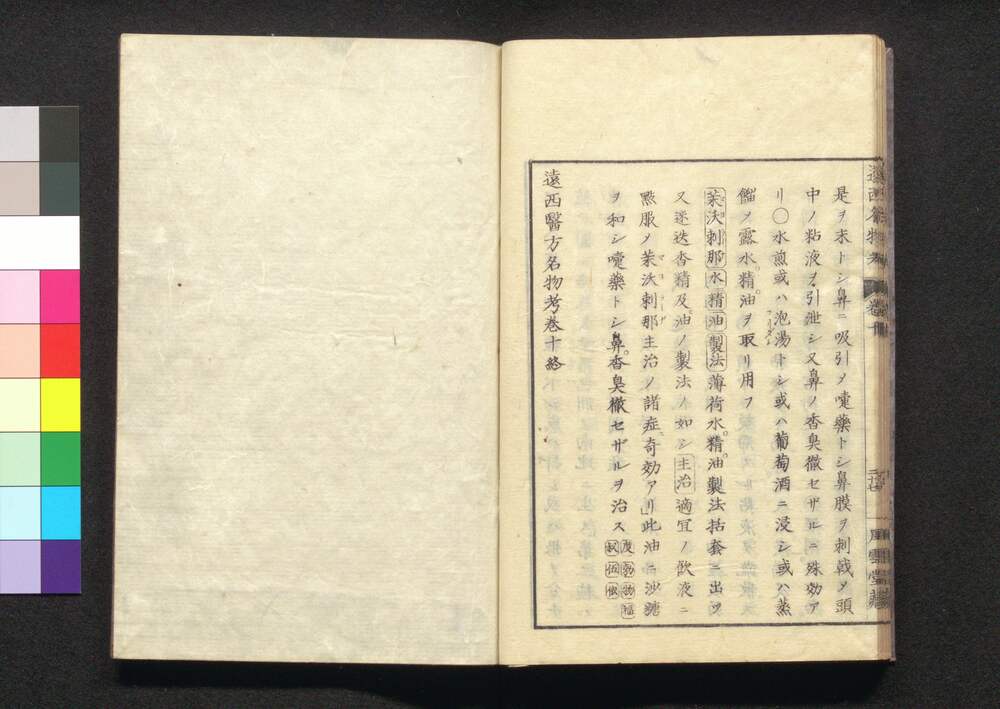 是ヲ末トシ鼻ニ吸引メ嚏藥トシ鼻膜ヲ刺戟メ頭
中ノ粘液ヲ引泄シ又鼻ノ香臭徹セザルニ殊効ア
リ〇水煎或ハ泡湯トシ或ハ葡萄酒ニ浸シ或ハ蒸
餾メ露水精油ヲ取リ用フ
茉沃剌那水精油製法薄荷水精油製法括套ニ出ヅ
又迷迭香精及油ノ製法ノ如シ主治適宜ノ飲液ニ
㸃服メ茉沃剌那主治ノ諸症奇効アリ此油ニ沙糖
ヲ和シ嚏藥トシ鼻香臭徹セザルヲ治ス
遠西醫方名物考卷十終